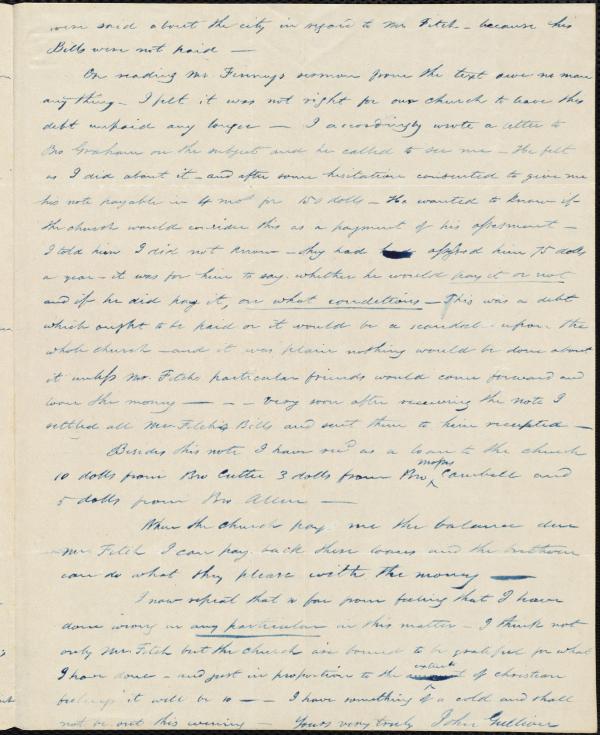 were said about the city in regard to Mr Fitch - because his
Bills were not paid —
On reading Mr. Finneys sermon from the text owe no man
any thing - I felt it was not right for our church to leave this
debt unpaid any longer — I accordingly wrote a letter to
Bro Graham on the subject and he called to see me - He felt
as I did about it - and after some hesitation consented to give me
his note payable in 4 mos for 150 dolls - He wanted to know if
the church would consider this as a payment of his assessment -
I told him I did not know - they had assessed him 75 dolls
a year - it was for him to say whether he would pay it or not
and if he did pay it, on what conditions - This was a debt
which ought to be paid or it would be a scandal upon the
whole church - and it was plain nothing would be done about
it unless Mr. Fitchs particular friends would come forward and
loan the money — - - Very soon after receiving the note I
settled all Mr Fitchs Bills and sent them to him receipted -
Besides this note I have recd as a loan to the church
10 dolls from Bro Cutler 3 dolls from Bro Moses Cambell and
5 dolls from Bro Allen —
When the church pays me the balance due
Mr. Fitch I can pay back these loans and the brethren
can do what they please with the money —
I now repeat that so far from feeling that I have
done wrong in any particular in this matter - I think not
only Mr. Fitch but the church are bound to be grateful for what
I have done - and just in proportion to the extent of christian
feelings it will be so - I have something of a cold and shall
not be out this evening - Yours very truly John Gulliver